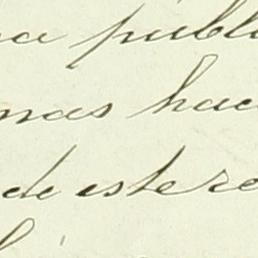 na públ
mas hac
de estere